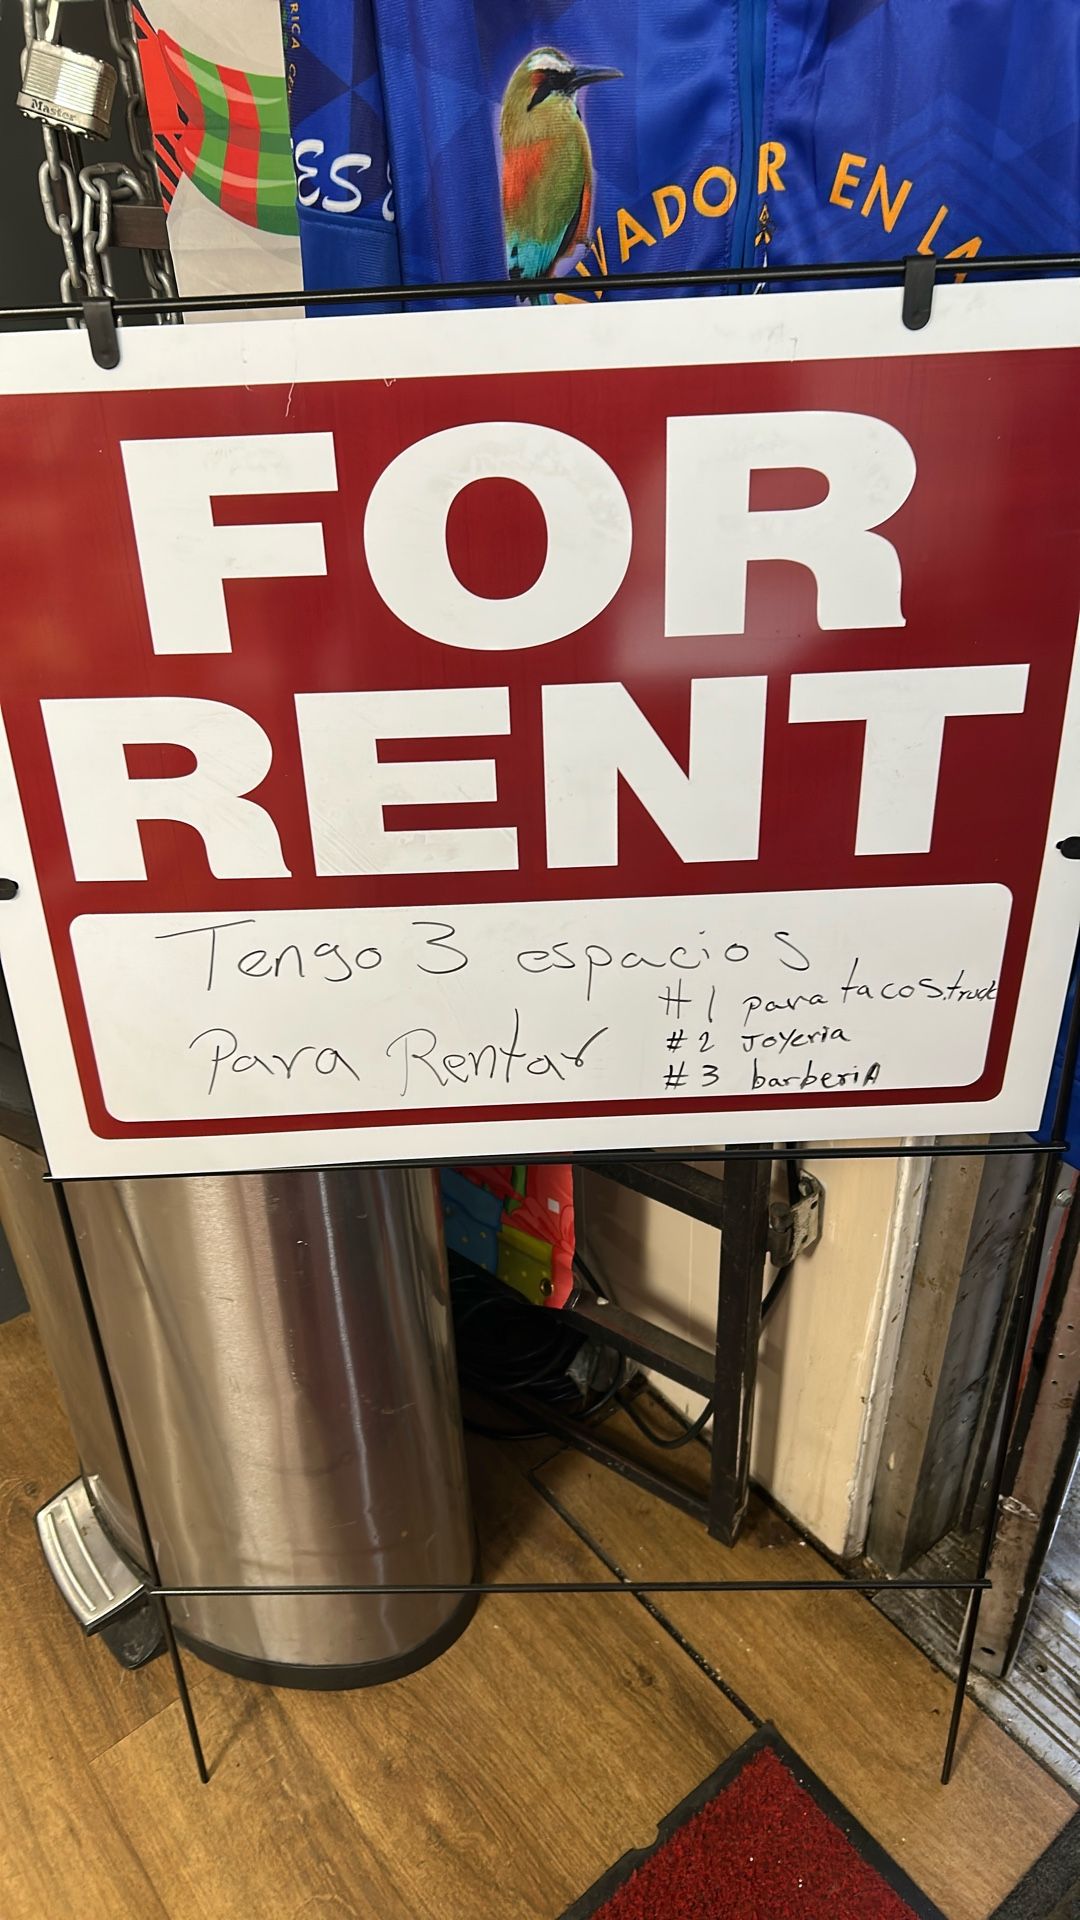 Master
RICA
ES
VADOR EN LA
FOR
RENT
Tengo 3 espacios
Para Rentar
#1 para tacos.truck
#2 Joyeria
#3 barberiA